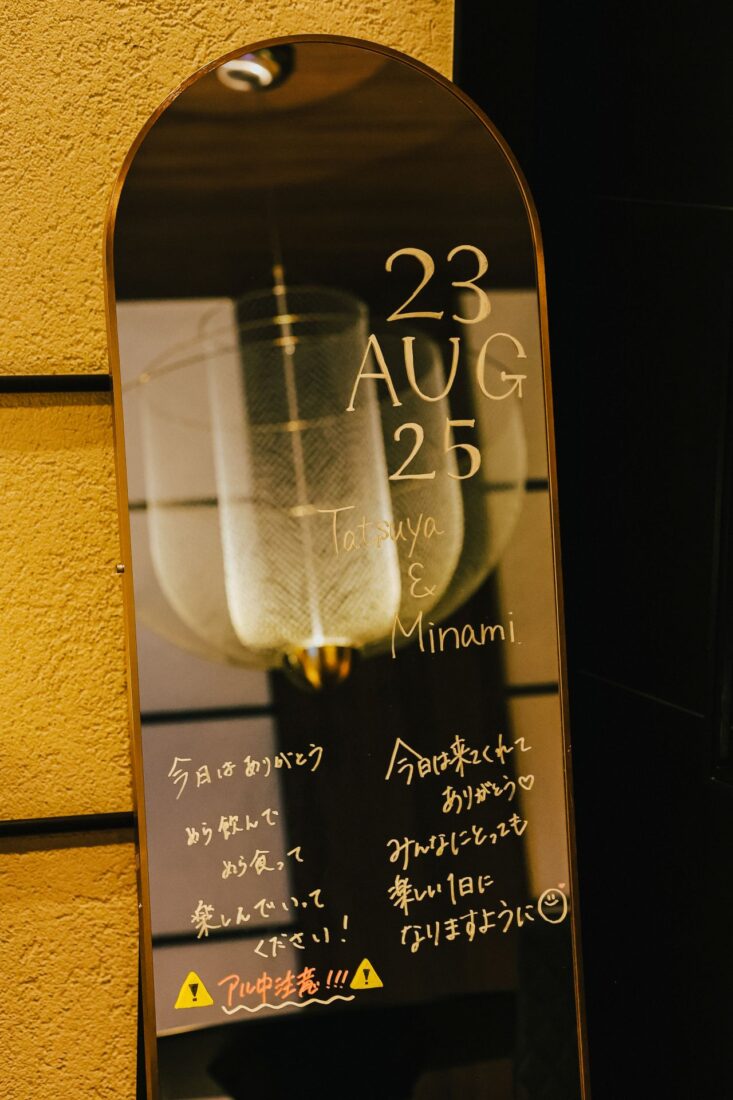 23
AUG
25
Tatsuya
&
Minami.
今日はありがとう
めら飲んで
めら食って
楽しんでいって
ください！
アル中注意!!!
今日は来てくれて
ありがとう♡
みんなにとっても
楽しい1日に
なりますように